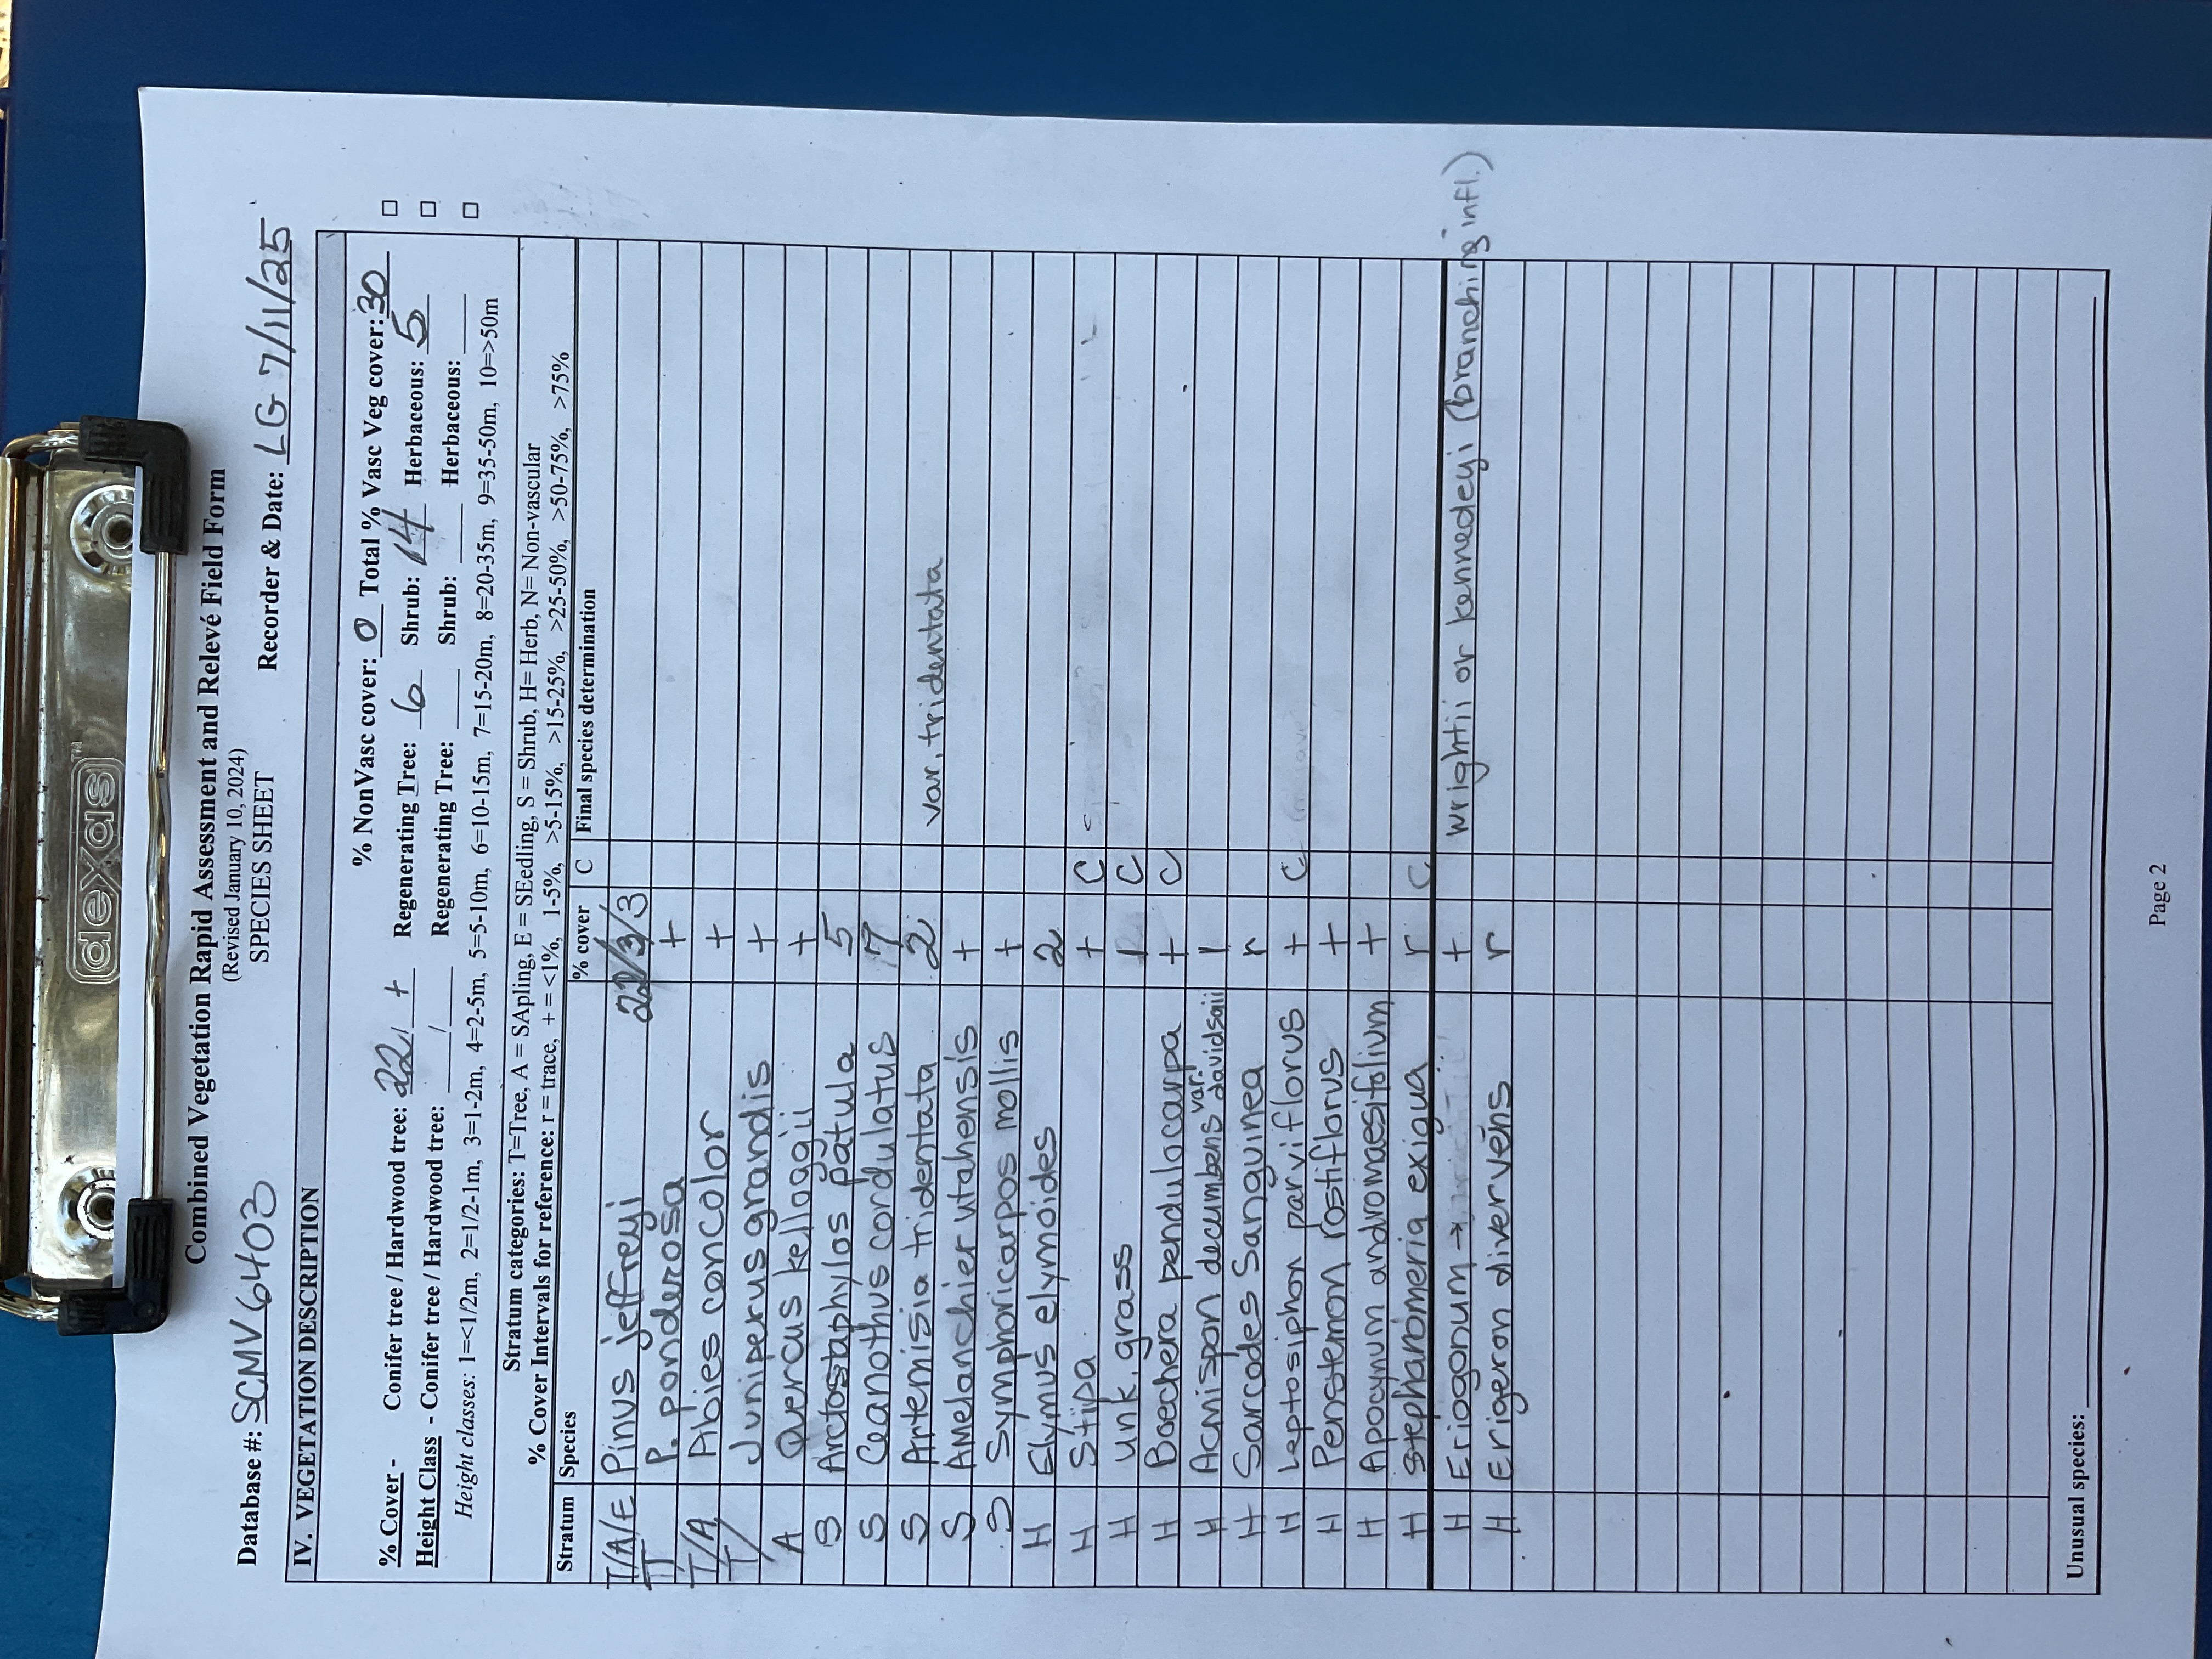 dexas™
Combined Vegetation Rapid Assessment and Relevé Field Form
(Revised January 10, 2024)
SPECIES SHEET
Database #: SCMV6403 Recorder & Date: LG 7/11/25
IV. VEGETATION DESCRIPTION
% NonVasc cover: 0 Total % Vasc Veg cover: 30
% Cover - Conifer tree / Hardwood tree: 22 / + Regenerating Tree: 6 Shrub: 14 Herbaceous: 5
Height Class - Conifer tree / Hardwood tree: / Regenerating Tree: Shrub: Herbaceous:
Height classes: 1=<1/2m, 2=1/2-1m, 3=1-2m, 4=2-5m, 5=5-10m, 6=10-15m, 7=15-20m, 8=20-35m, 9=35-50m, 10=>50m
Stratum categories: T=Tree, A = SApling, E = SEedling, S = Shrub, H= Herb, N= Non-vascular
% Cover Intervals for reference: r = trace, + = <1%, 1-5%, >5-15%, >15-25%, >25-50%, >50-75%, >75%
Stratum Species % cover C Final species determination
T/A/E Pinus jeffreyi 22/3/3
T P. ponderosa +
T/A Abies concolor +
T/ Juniperus grandis +
A Quercus kelloggii +
S Arctostaphylos patula 5
S Ceanothus cordulatus 7
S Artemisia tridentata 2 var. tridentata
S Amelanchier utahensis +
S Symphoricarpos mollis +
H Elymus elymoides 2
H Stipa + C
H unk. grass 1 C
H Boechera pendulocarpa + C
H Acmispon decumbens var. davidsonii 1
H Sarcodes Sanguinea r
H Leptosiphon parviflorus + C
H Penstemon rostiflorus +
H Apocynum andromaesifolium +
H Stephanomeria exigua r C
H Eriogonum → + wrightii or kennedeyi (branching infl.)
H Erigeron divervens r
Unusual species:
Page 2